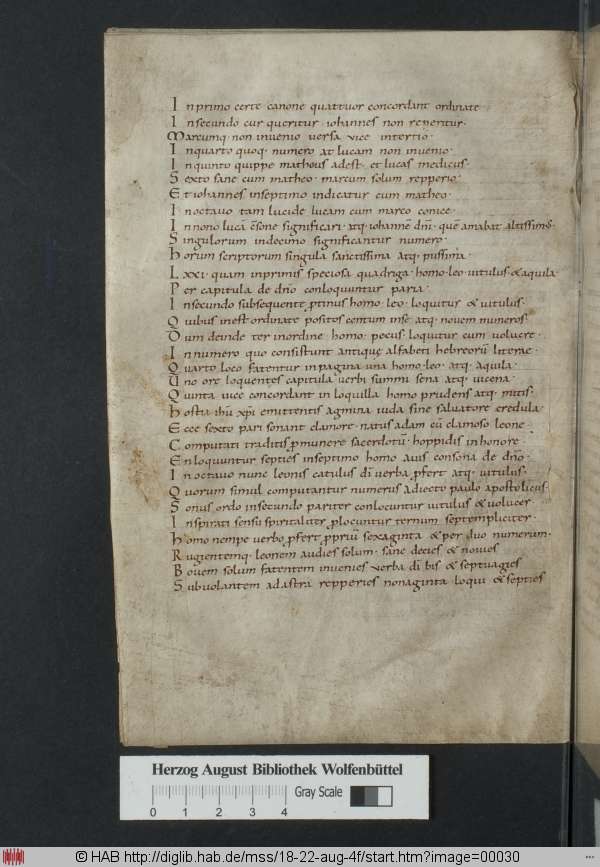 In primo certe canone quattuor concordant ordinate·
In secundo cur queritur iohannes non reperitur·
Marcumq· non invenio versa vice in tertio·
In quarto quoq· numero at lucam non invenio·
In quinto quippe matheus adest· et lucas medicus·
Sexto sane cum matheo· marcum solum repperio·
Et iohannes in septimo indicatur cum matheo·
In octavo tam lucide lucam cum marco conice·
In nono lucā significari· atq· iohannē dm̄· quē amabat altissimus
Singulorum in decimo significantur numero·
Horum scriptorum singula sanctissima atq· purissima
Lxxi· quam in primis speciosa quadriga· homo· leo· vitulus & aquila
Per capitula de dn̄o conloquuntur paria·
In secundo subsequente protinus homo· leo· loquitur & vitulus·
Quibus inest ordinate positos centum inse· atq· novem numeros·
Dum deinde ter in ordine homo· pecus· loquitur cum volucre·
In numero quo consistunt antiquę alfabeti hebreorū literae·
Quarto loco fatentur in pagina una homo· leo· atq· aquila·
Uno ore loquentes capitula verbi summi sena atq· vicena·
Quinta vice concordant in loquilla homo prudens atq· mitis·
Hostia ihū xpī emittentis agmina iuda sine salvatore credula·
Ecce sexto pari sonant clamore· natus adam cū clamoso leone·
Computati traditis p munere sacerdotū· hoppidis in honore
Enloquuntur septies in septimo homo avis consona de dn̄o·
In octavo nunc leonis catulus dī verba pfert atq· vitulus·
Quorum simul computantur numerus adiecto paulo apostolicus·
Sonus ordo in secundo pariter conlocuntur vitulus & volucer·
Inspirati sensu spiritaliter plocuntur ternum septempliciter·
Homo nempe verbo pfert ppriū sexaginta & per duo numerum·
Rugientemq· leonem audies solum· sane decies & novies
Bovem solum fatentem invenies verba dī bis & septuagies
Subvolantem ad astra repperies nonaginta loqui & septies
Herzog August Bibliothek Wolfenbüttel
Gray Scale
0 1 2 3 4
© HAB http://diglib.hab.de/mss/18-22-aug-4f/start.htm?image=00030